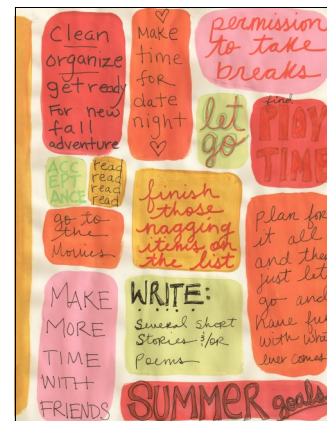 Clean
organize
get ready
For new
fall
adventure
♡
Make
time
for
date
night
♡
permission
to take
breaks
let
go
find
PLAY
TIME
ACC
EPT
ANCE
read
read
read
read
go to
the
Movies
finish
those
nagging
items on
the list
Plan for
it all
and then
just let
go and
have fun
with what
ever comes
MAKE
MORE
TIME
WITH
FRIENDS
WRITE:
Several short
Stories &/or
Poems
SUMMER goals